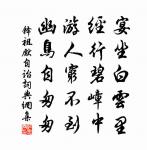 宴坐白雲裡
經行碧嶂中
游人窮不到
幽鳥自匆匆
釋祖欽自詒詞典網集